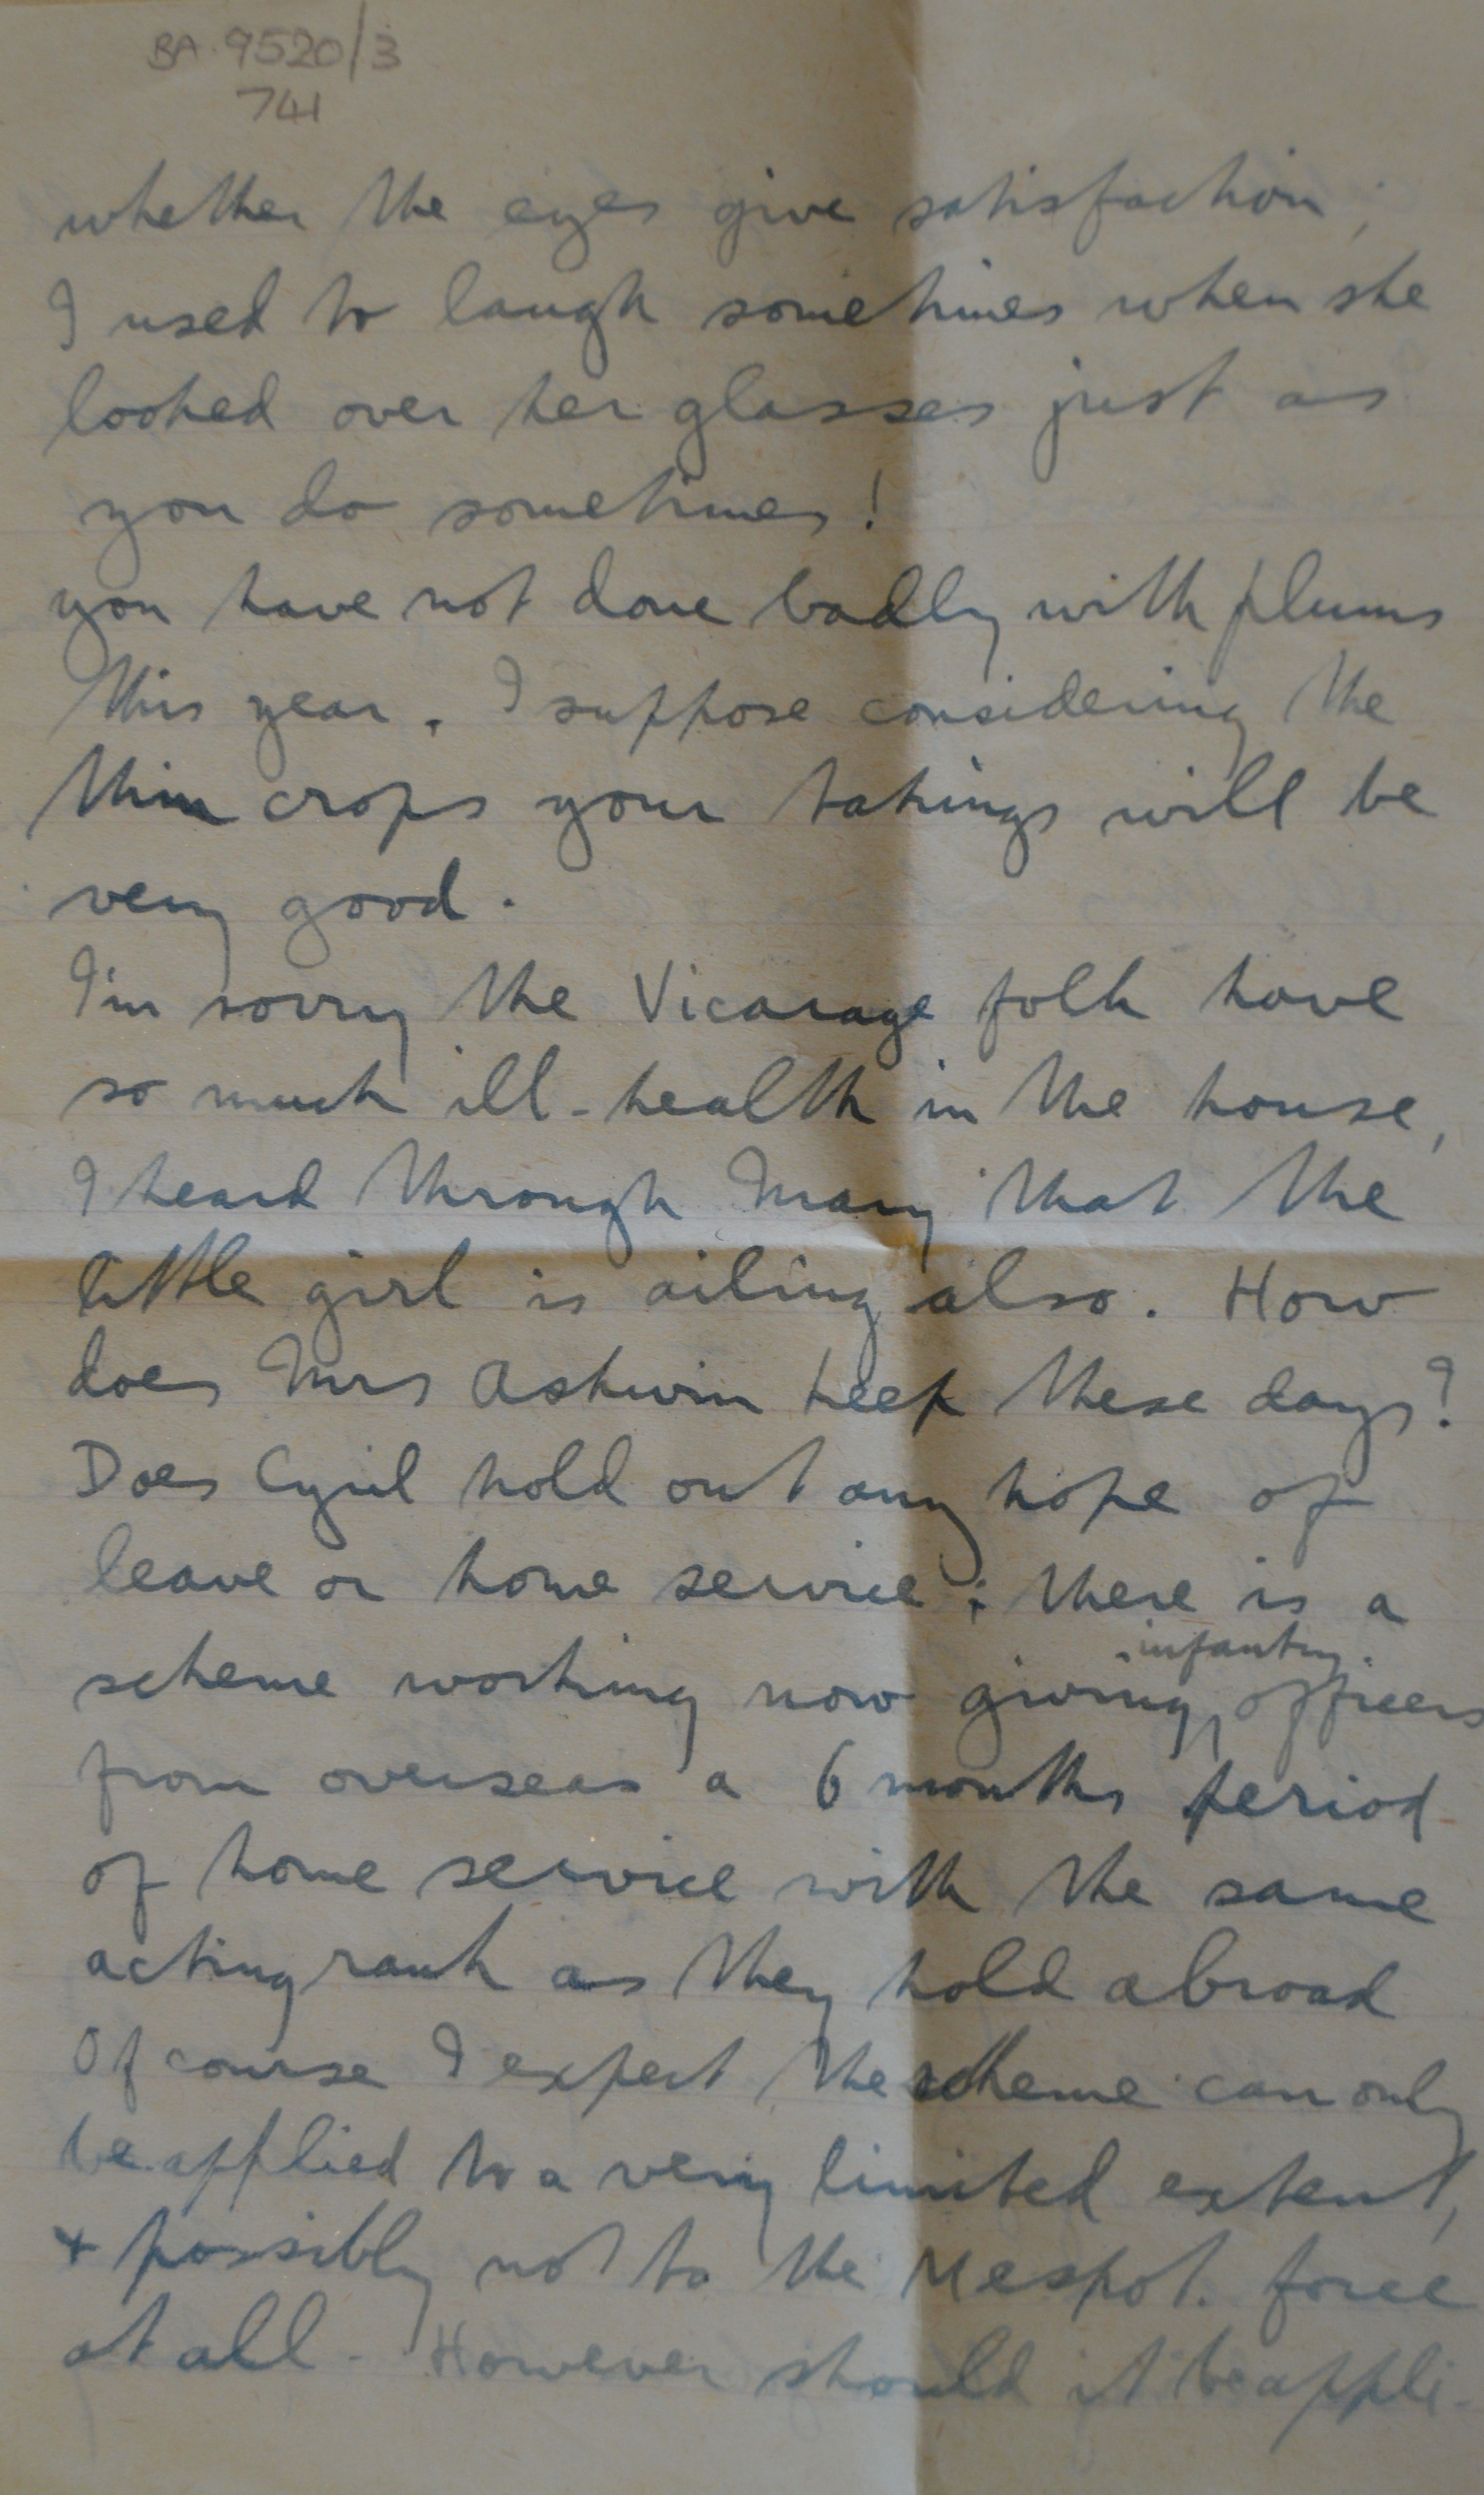 BA 9520/3
741
whether the eyes give satisfaction,
I used to laugh sometimes when she
looked over her glasses just as
you do sometimes!
you have not done badly with plums
this year. I suppose considering the
thin crops your takings will be
very good.
I'm sorry the Vicarage folk have
so much ill-health in the house,
I heard through Mary that the
little girl is ailing also. How
does Mrs Ashwin keep these days?
Does Cyril hold out any hope of
leave or home service; there is a
infantry
scheme working now giving officers
from overseas a 6 months period
of home service with the same
acting rank as they hold abroad
Of course I expect the scheme can only
be applied to a very limited extent,
+ possibly not to the Mespot. force
at all. However should it be appli-